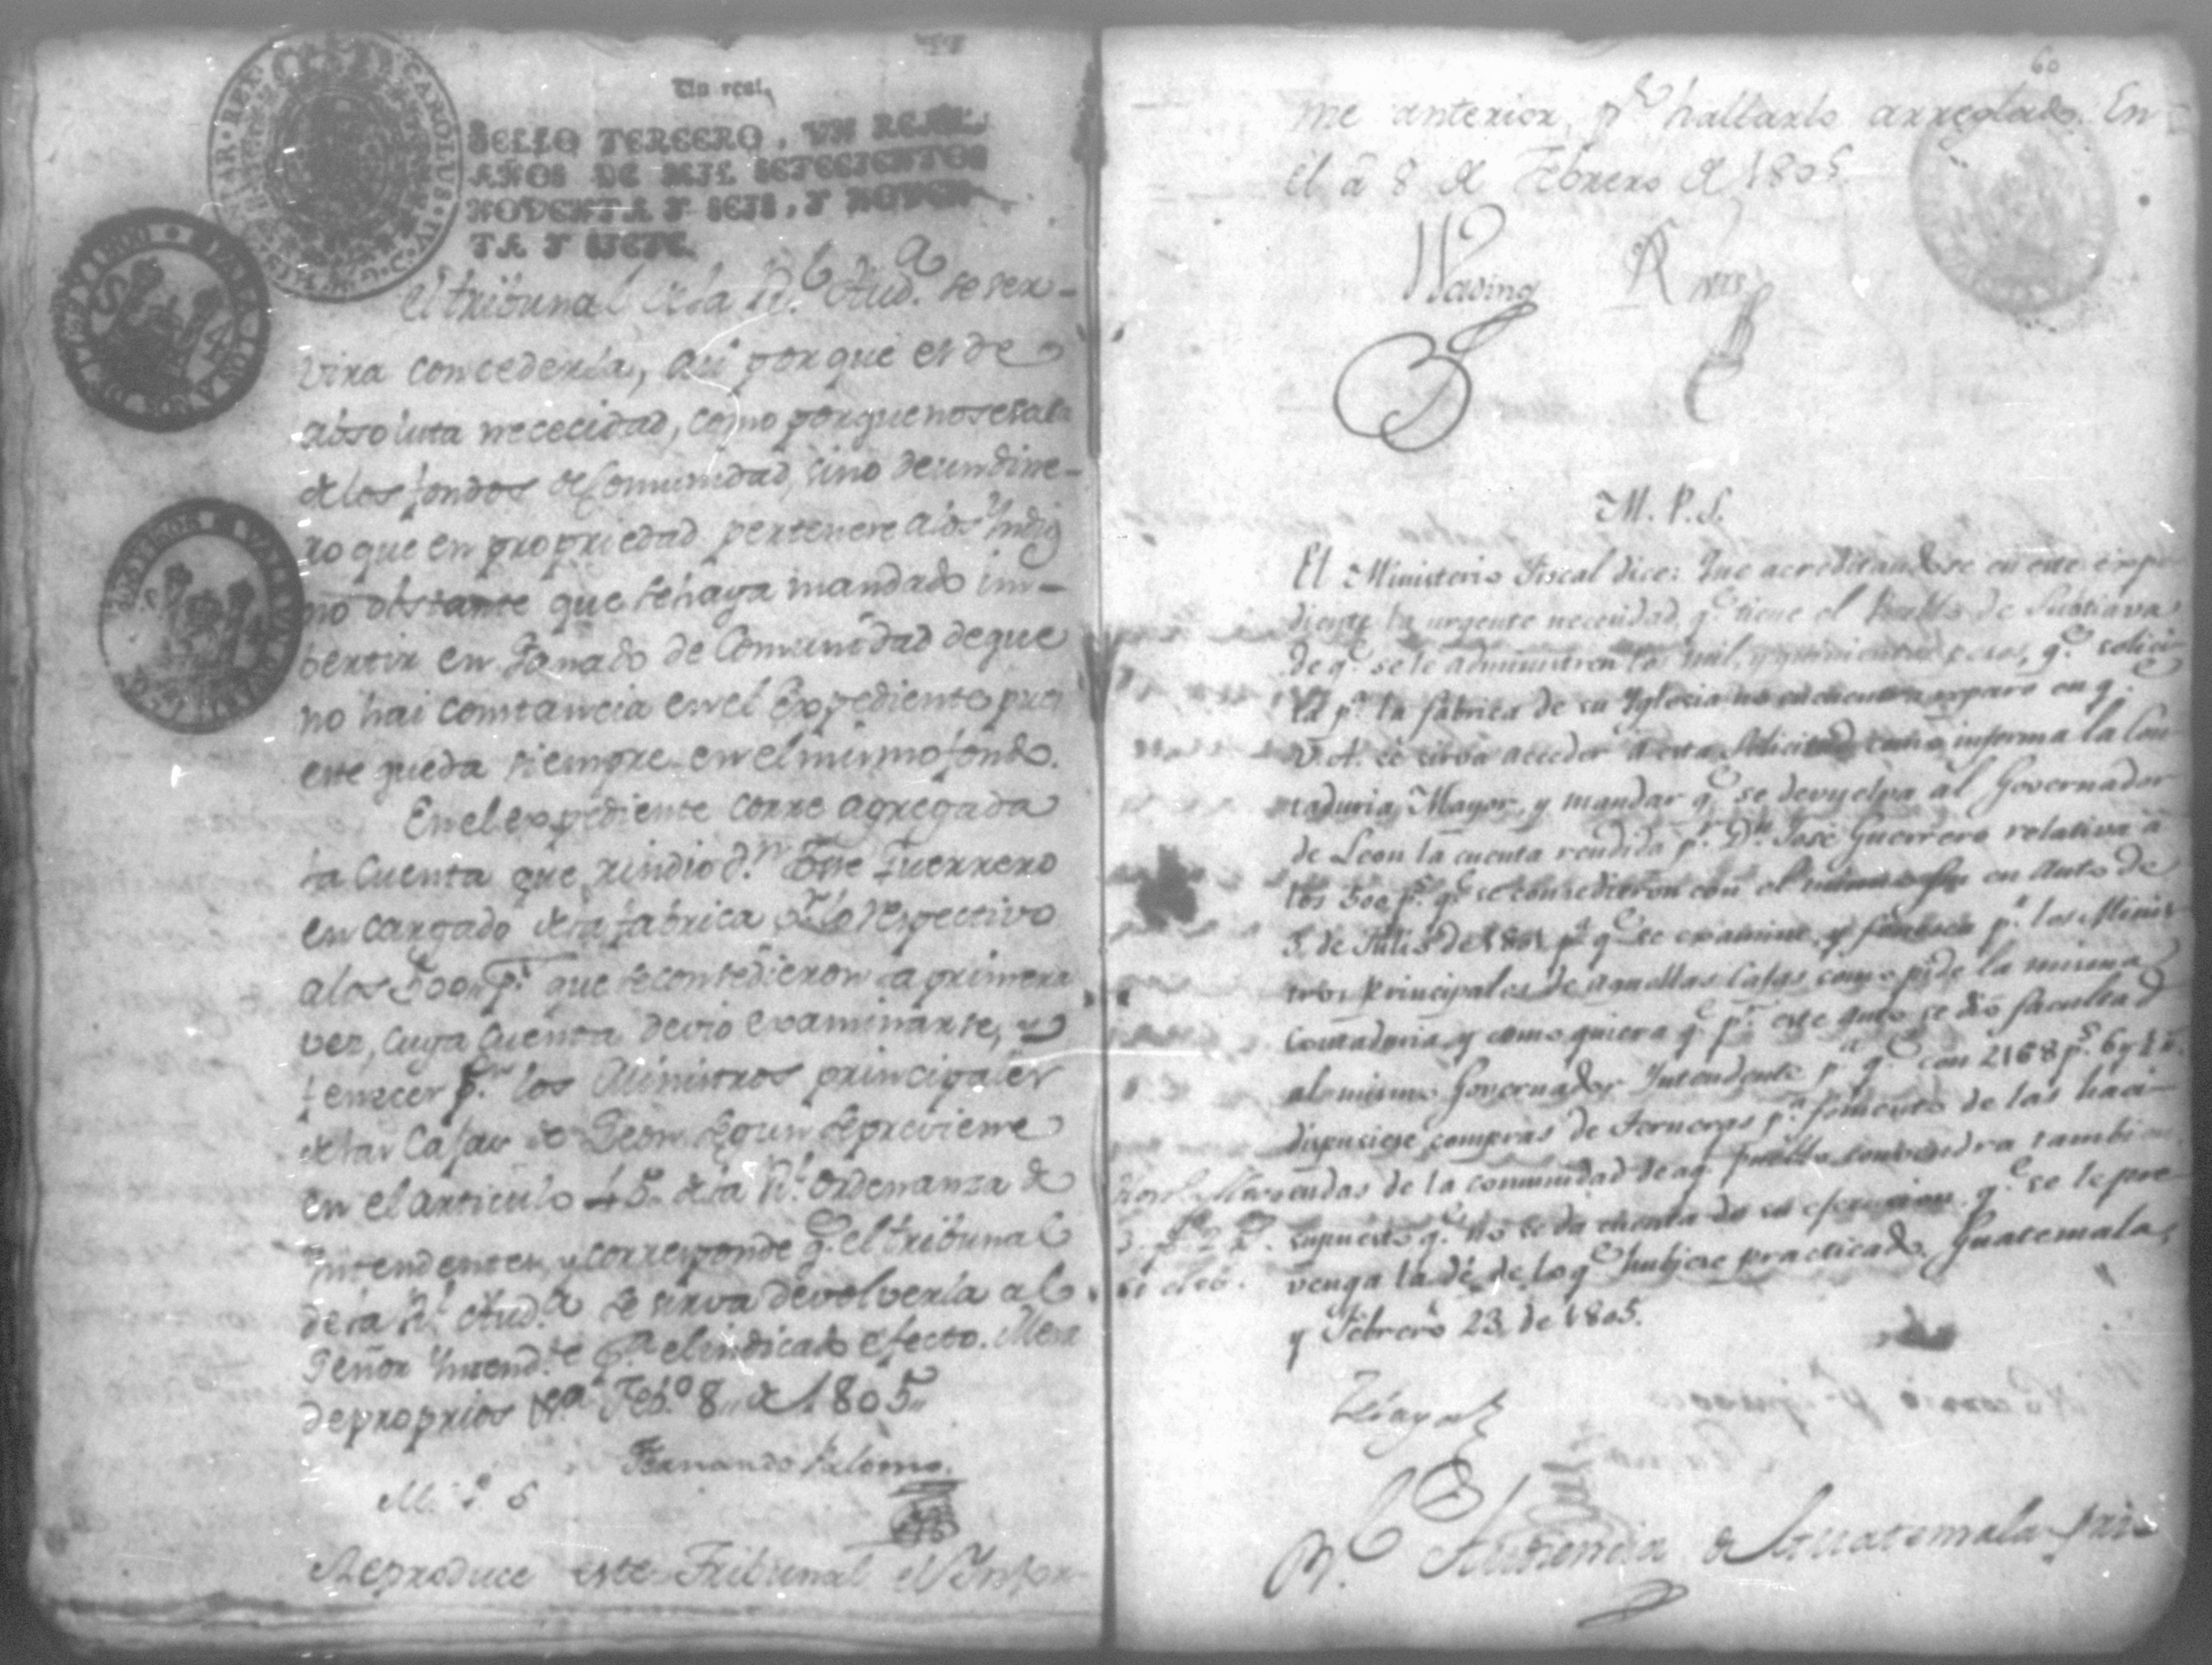 Un real
SELLO TERCERO, UN REAL
AÑOS DE MIL SETECIENTOS
NOVENTA Y SEIS, Y NOVEN
TA Y SIETE.
CAROLUS IV
el tribunal de la Rl. Aud.a se ser-
vira concederla, asi porque es de
absoluta nececidad, como porque no se
de los fondos de Comunidad, sino de un dine-
ro que en propriedad pertenece a los Yndios
no obstante que se haya mandado in-
bertir en Ganado de Comunidad de que
no hai constancia en el Expediente pues
este queda siempre en el mismo fondo.
En el expediente corre agregada
la Cuenta que rindio d.n Jose Guerrero
encargado de la fabrica respectivo
a los 500 p.s que se concedieron la primera
vez, cuya Cuenta devio examinarse, y
fenecer p.r los Ministros principales
de las Cajas de Leon segun se previene
en el articulo 45 de la Rl. Ordenanza de
Yntendentes, y corresponde q.e el tribunal
de la Rl. Aud.a se sirva devolverla al
Señor Yntend.te p.a el indicado efecto. Mesa
de proprios Feb.o 8 de 1805
Fernando Palomo
Reproduce este Tribunal el Infor-
60
me anterior, p.r hallarlo arreglado. En
el á 8 de Febrero de 1805
Wading
M. P. S.
El Ministerio Fiscal dice: Que acreditandose en este expe
diente la urgente necesidad, q.e tiene el Pueblo de Subtiava
de q.e se le administren los mil, y quinientos pesos, q.e solici
ta p.a la fabrica de su Yglesia no encuentra reparo en q.e
V.A. se sirva acceder á esta solicitud como informa la Con
taduria Mayor, y mandar q.e se devuelva al Governador
de Leon la cuenta rendida p.r D.n José Guerrero relativa á
los 500 p.s q.e se concedieron con el mismo fin en auto de
3 de Julio de 1801 p.a q.e se examine, y fenesca p.r los Minis
tros Principales de aquellas Cajas como pide la misma
Contaduria, y como quiera q.e p.r este auto se dió facultad
al mismo Governador Yntendente p.a q.e con 2168 p.s 6 y
dispusiese compras de Terneras p.a fomento de las haci
endas de la comunidad de aq.l pueblo, convendra tambien
supuesto q.e no se da cuenta de su esecucion q.e se le pre
venga la dé de lo q.e hubiere practicado. Guatemala,
y Febrero 23, de 1805.
Rl. Audiencia de Guatemala